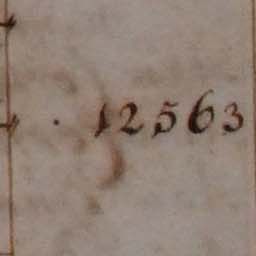 . 12563